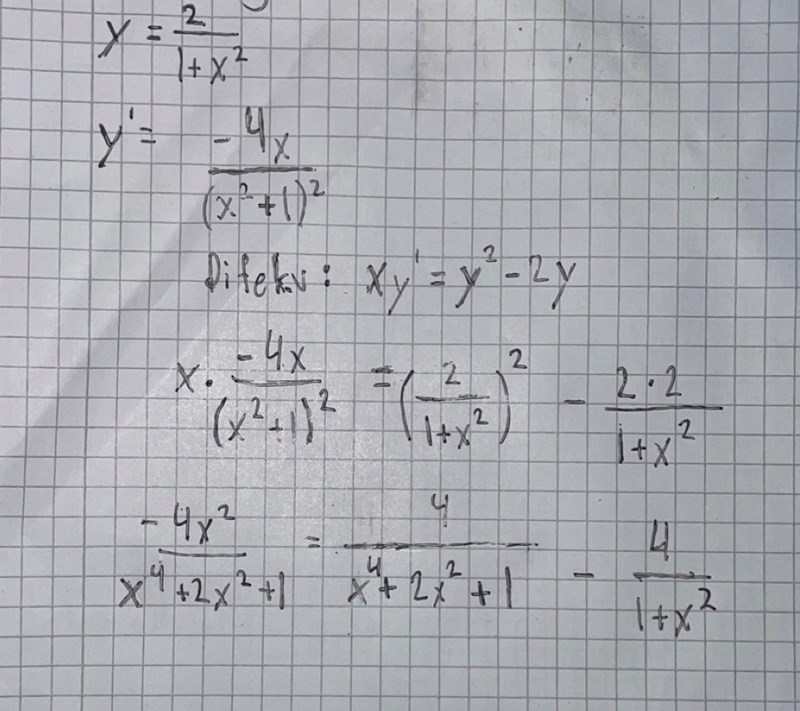 y = 2/(1+x²)
y' = -4x/(x²+1)²
Difekv: xy' = y² - 2y
x · -4x/(x²+1)² = (2/(1+x²))² - 2·2/(1+x²)
-4x²/(x⁴+2x²+1) = 4/(x⁴+2x²+1) - 4/(1+x²)